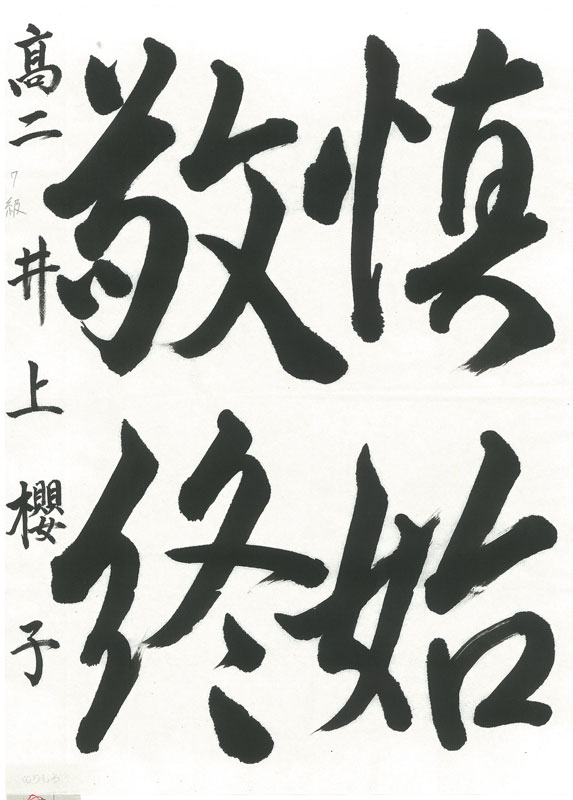 慎始
敬終
高二 7級 井上櫻子